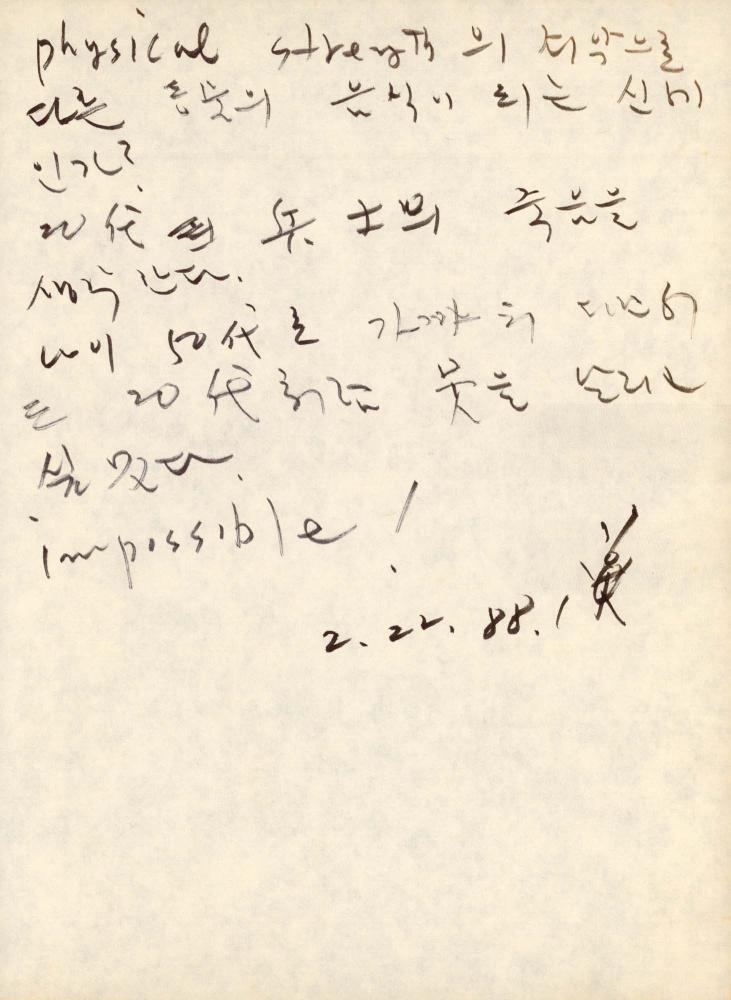 physical strength의 취약으로
다른 동물의 음식이 되는 신비
인가?
20代 兵士의 죽음을
생각한다.
나이 50代로 가까히
20代처럼 붓을
싶었다.
impossible!
2. 22. 88.